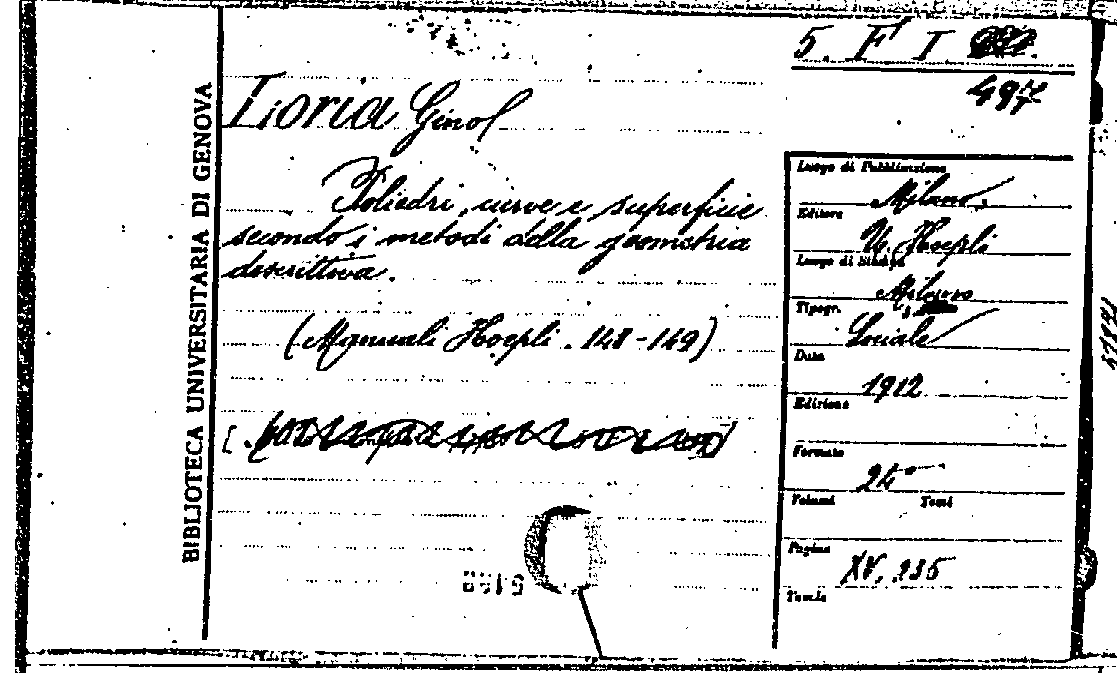 5. F I
497
BIBLIOTECA UNIVERSITARIA DI GENOVA
Loria Gino
Poliedri, curve e superficie
secondo i metodi della geometria
descrittiva.
(Manuali Hoepli . 148-149)
Luogo di Pubblicazione
Milano
Editore
U. Hoepli
Luogo di Stampa
Milano
Tipogr.
Sociale
Data
1912
Edizione
Formato
24°
Volumi Tomi
Pagine
XV, 235
Tavole